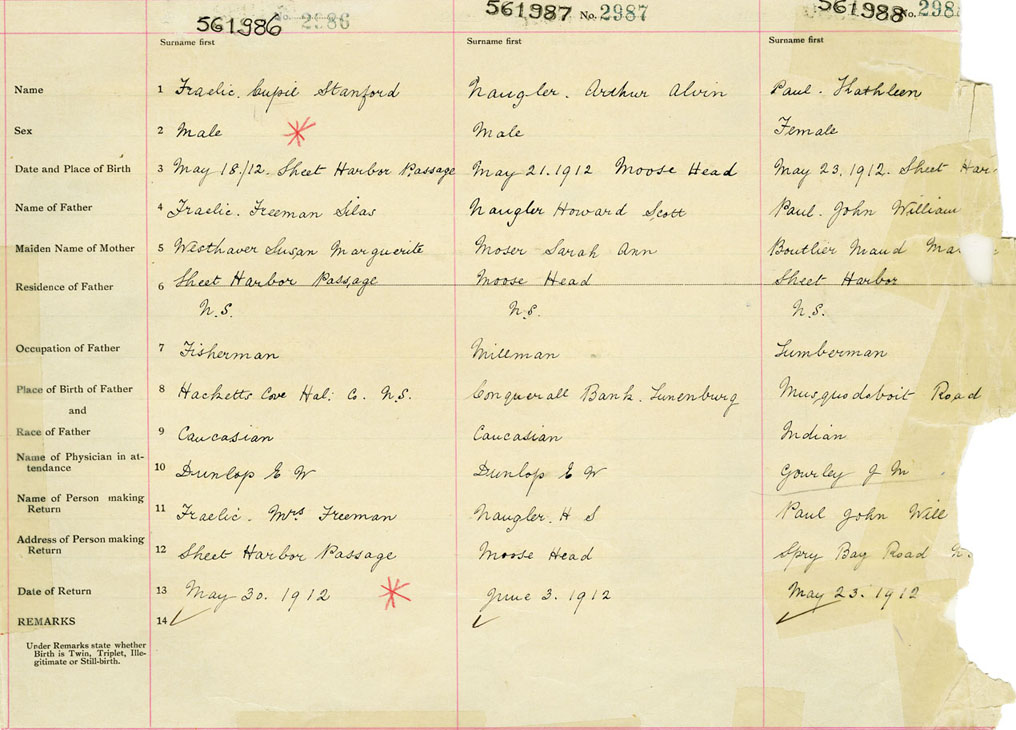 561986 No. 2986 561987 No. 2987 561988 No. 298
Surname first Surname first Surname first
Name 1 Fraelic. Cupil Stanford Naugler. Arthur Alvin Paul. Kathleen
Sex 2 Male Male Female
Date and Place of Birth 3 May 18./12. Sheet Harbor Passage May 21. 1912 Moose Head May 23. 1912. Sheet Har
Name of Father 4 Fraelic. Freeman Silas Naugler Howard Scott Paul. John William
Maiden Name of Mother 5 Westhaver Susan Marguerite Moser Sarah Ann Boutlier Maud Ma
Residence of Father 6 Sheet Harbor Passage Moose Head Sheet Harbor
N.S. N.S. N.S.
Occupation of Father 7 Fisherman Millman Lumberman
Place of Birth of Father 8 Hacketts Cove Hal: Co. N.S. Conquerall Bank. Lunenburg Musquodoboit Road
and
Race of Father 9 Caucasian Caucasian Indian
Name of Physician in at-
tendance 10 Dunlop E W Dunlop E W Gourley J M
Name of Person making
Return 11 Fraelic. Mrs Freeman Naugler. H S Paul John Will
Address of Person making
Return 12 Sheet Harbor Passage Moose Head Spry Bay Road
Date of Return 13 May 30. 1912 June 3. 1912 May 23. 1912
REMARKS 14
Under Remarks state whether
Birth is Twin, Triplet, Ille-
gitimate or Still-birth.